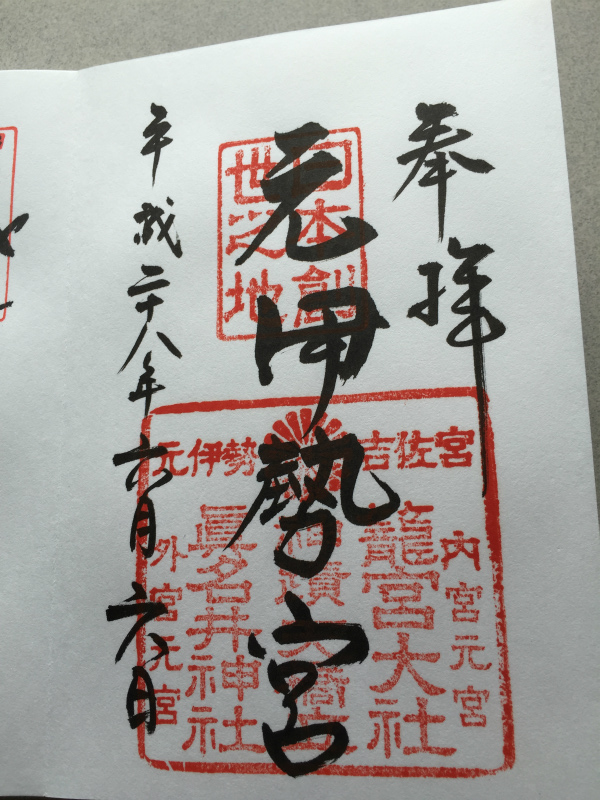 奉拝
日本創
世之地
元伊勢宮
元伊勢
吉佐宮
内宮元宮
籠宮大社
眞名井神社
外宮元宮
平成二十八年六月六日